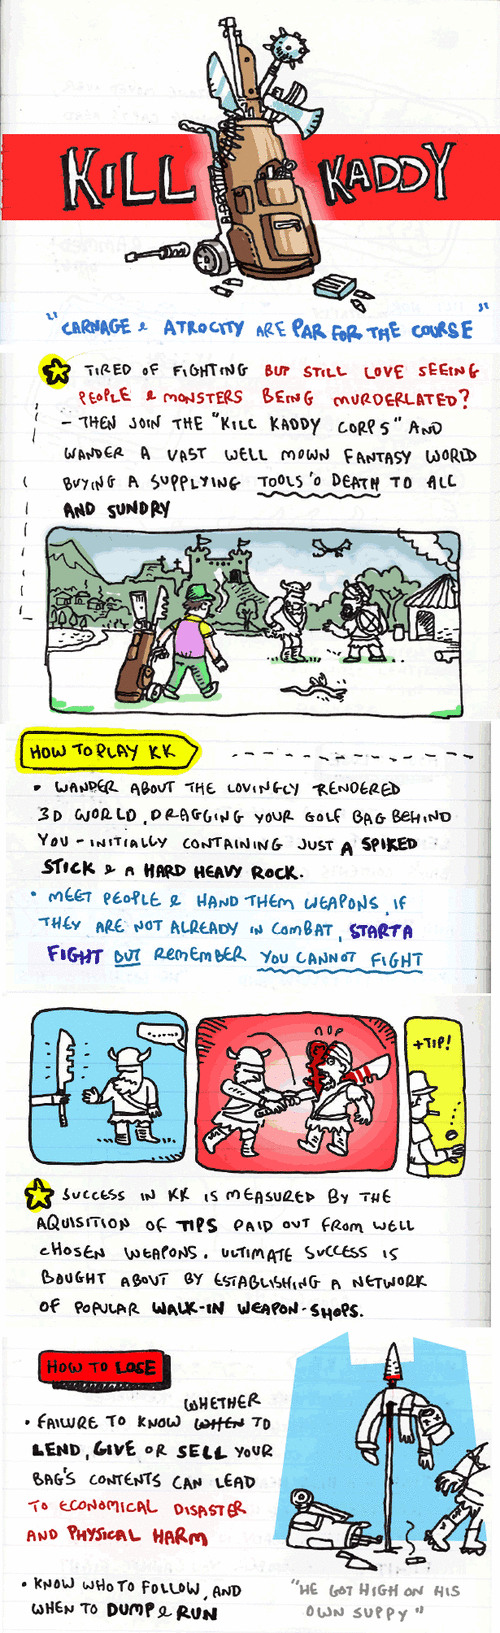 KILL KADDY
"CARNAGE & ATROCITY ARE PAR FOR THE COURSE"
TIRED OF FIGHTING BUT STILL LOVE SEEING
PEOPLE & MONSTERS BEING MURDERLATED?
- THEN JOIN THE "KILL KADDY CORPS" AND
WANDER A VAST WELL MOWN FANTASY WORLD
BUYING A SUPPLYING TOOLS 'O DEATH TO ALL
AND SUNDRY
HOW TO PLAY KK
• WANDER ABOUT THE LOVINGLY RENDERED
3D WORLD, DRAGGING YOUR GOLF BAG BEHIND
YOU - INITIALLY CONTAINING JUST A SPIKED
STICK & A HARD HEAVY ROCK.
• MEET PEOPLE & HAND THEM WEAPONS, IF
THEY ARE NOT ALREADY IN COMBAT, START A
FIGHT BUT REMEMBER YOU CANNOT FIGHT
+TIP!
SUCCESS IN KK IS MEASURED BY THE
AQUISITION OF TIPS PAID OUT FROM WELL
CHOSEN WEAPONS. ULTIMATE SUCCESS IS
BOUGHT ABOUT BY ESTABLISHING A NETWORK
OF POPULAR WALK-IN WEAPON-SHOPS.
HOW TO LOSE
WHETHER
• FAILURE TO KNOW WHEN TO
LEND, GIVE OR SELL YOUR
BAG'S CONTENTS CAN LEAD
TO ECONOMICAL DISASTER
AND PHYSICAL HARM
• KNOW WHO TO FOLLOW, AND
WHEN TO DUMP & RUN
"HE GOT HIGH ON HIS
OWN SUPPY"